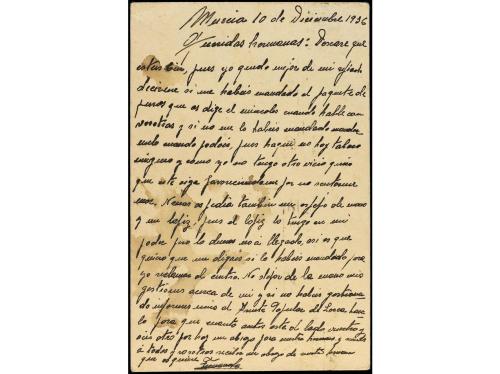 Murcia 10 de Diciembre 1936
Queridas hermanas: Desearé que
esteis bien, pues yo quedo mejor de mi
decirme si me habeis mandado el paquete de
puros que os dige el miercoles cuando hable con
vosotras y si no me lo habeis mandado mandar
melo cuando podais, pues haqui no hay tabaco
ninguno y como yo no tengo otro vicio
que este sigo
os pedia tambien un espejo de mano
y un lapiz, pues el lapiz lo tengo en mi
poder pero lo demas no a llegado, asi es que
quiero que me digais si lo habeis mandado para
yo reclamar al centro. No dejar de la mano mis
gestiones acerca de mi y si no habeis gestiona
do informes mios al Frente Popular de Lorca
lo para que cuanto antes este al lado vuestro y
sin otro por hoy un abrazo para nuestro hermano y
á todos y vosotras recibir un abrazo de vuestro hermano
que os quiere Fernando